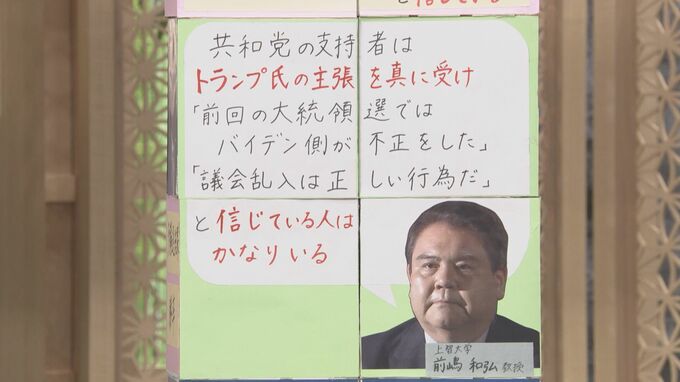 と信じている
共和党の支持者は
トランプ氏の主張を真に受け
「前回の大統領選では
バイデン側が不正をした」
「議会乱入は正しい行為だ」
と信じている人は
かなりいる
上智大学
前嶋 和弘 教授